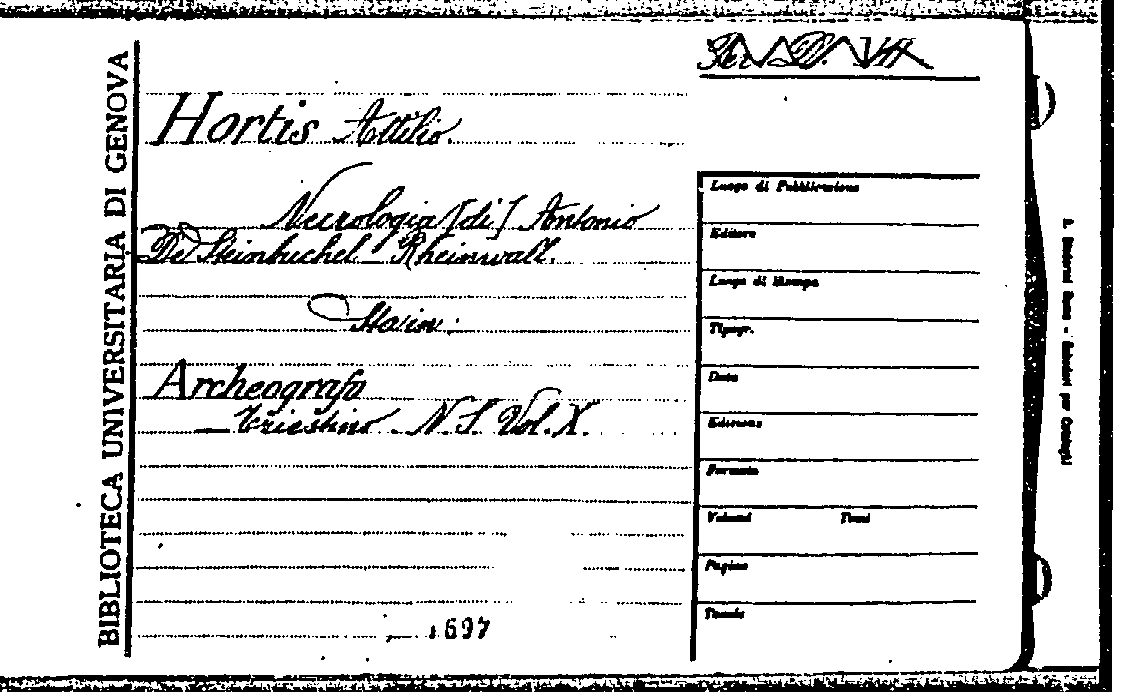 BIBLIOTECA UNIVERSITARIA DI GENOVA
Hortis Attilio.
Necrologia [di] Antonio
De Steinbüchel Rheinwall.
Sta in:
Archeografo
Triestino. N. S. Vol. X.
1697
Luogo di Pubblicazione
Editore
Luogo di Stampa
Tipogr.
Data
Edizione
Formato
Volumi Tomi
Pagine
Tavole